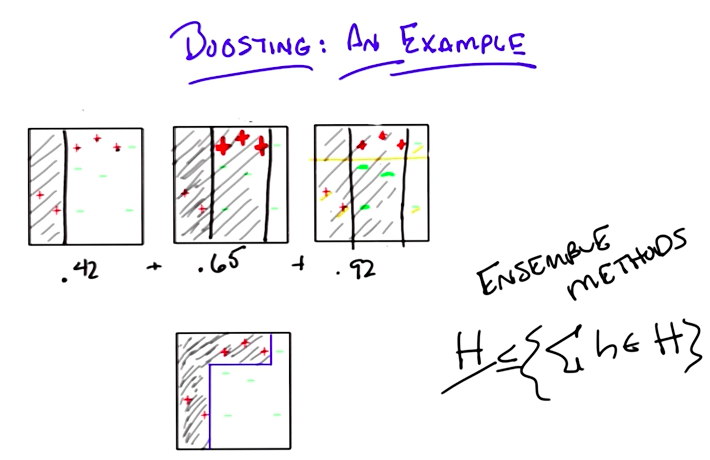 BOOSTING: AN EXAMPLE
.42 + .65 + .92
ENSEMBLE
METHODS
H ≤ { Σ h ∈ H }